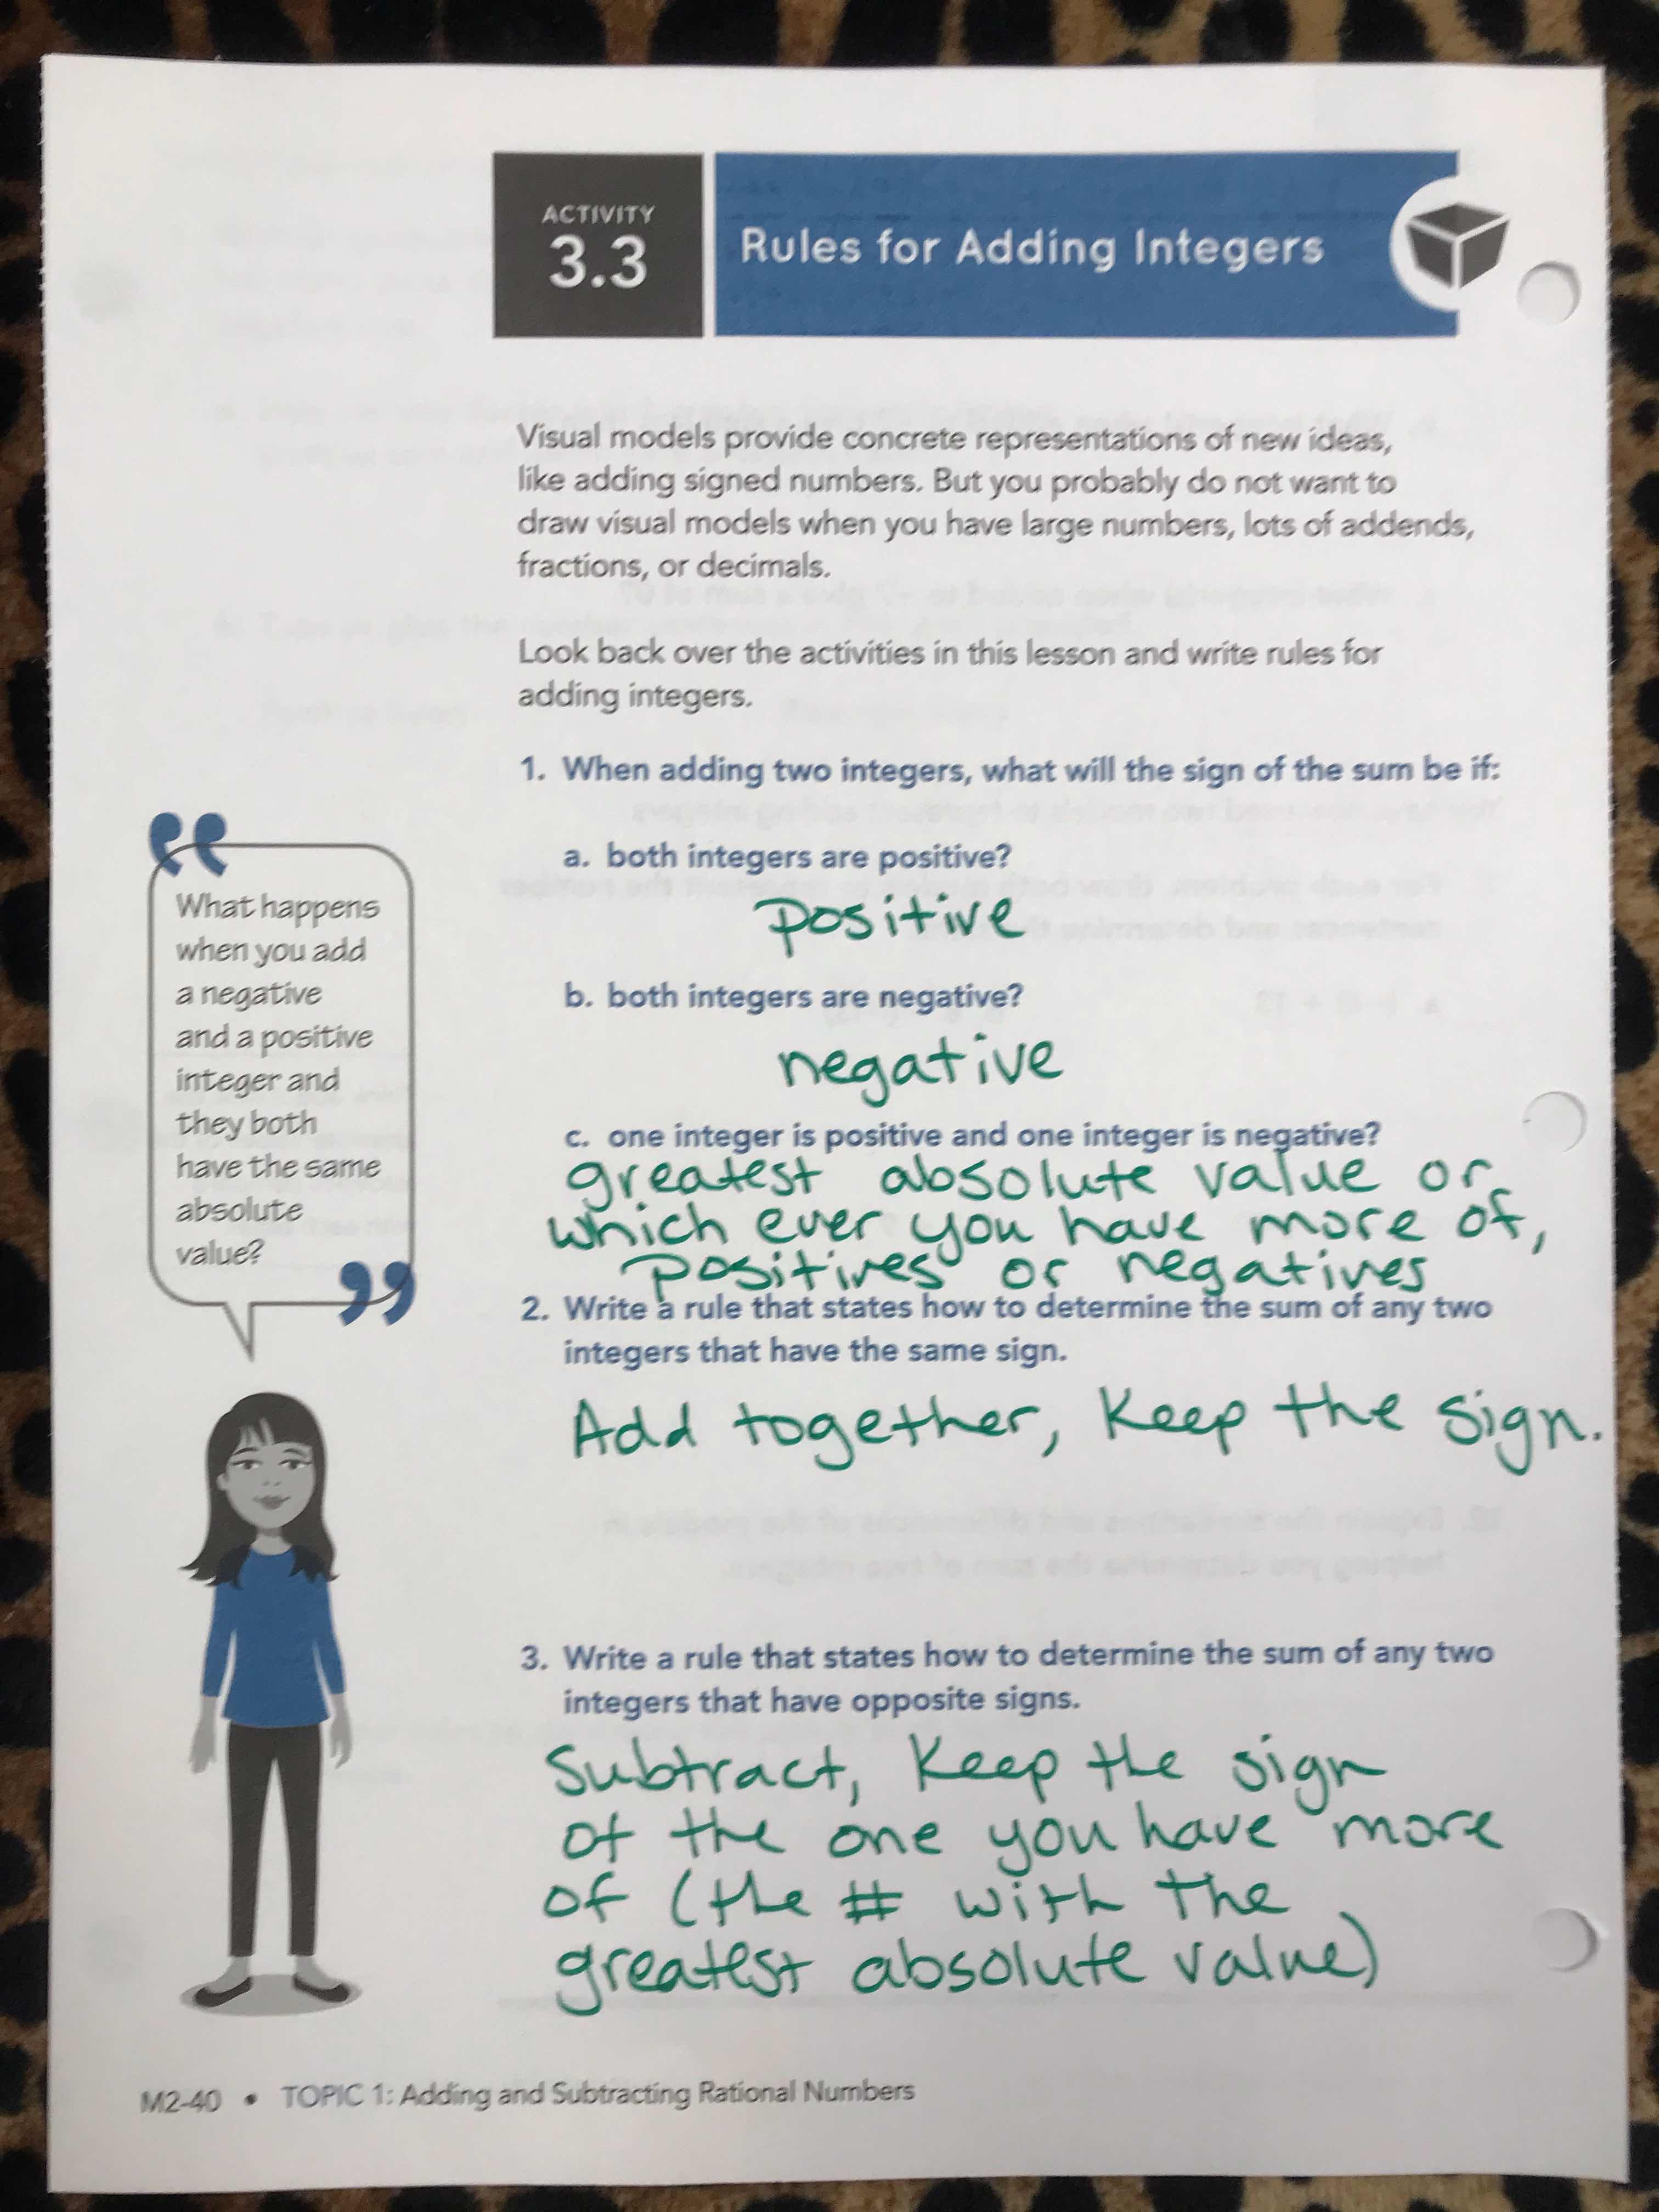 ACTIVITY
3.3
Rules for Adding Integers
Visual models provide concrete representations of new ideas,
like adding signed numbers. But you probably do not want to
draw visual models when you have large numbers, lots of addends,
fractions, or decimals.
Look back over the activities in this lesson and write rules for
adding integers.
1. When adding two integers, what will the sign of the sum be if:
a. both integers are positive?
positive
b. both integers are negative?
negative
c. one integer is positive and one integer is negative?
greatest absolute value or
which ever you have more of,
positives or negatives
“
What happens
when you add
a negative
and a positive
integer and
they both
have the same
absolute
value?
”
2. Write a rule that states how to determine the sum of any two
integers that have the same sign.
Add together, Keep the sign.
3. Write a rule that states how to determine the sum of any two
integers that have opposite signs.
Subtract, Keep the sign
of the one you have more
of (the # with the
greatest absolute value)
M2-40 • TOPIC 1: Adding and Subtracting Rational Numbers